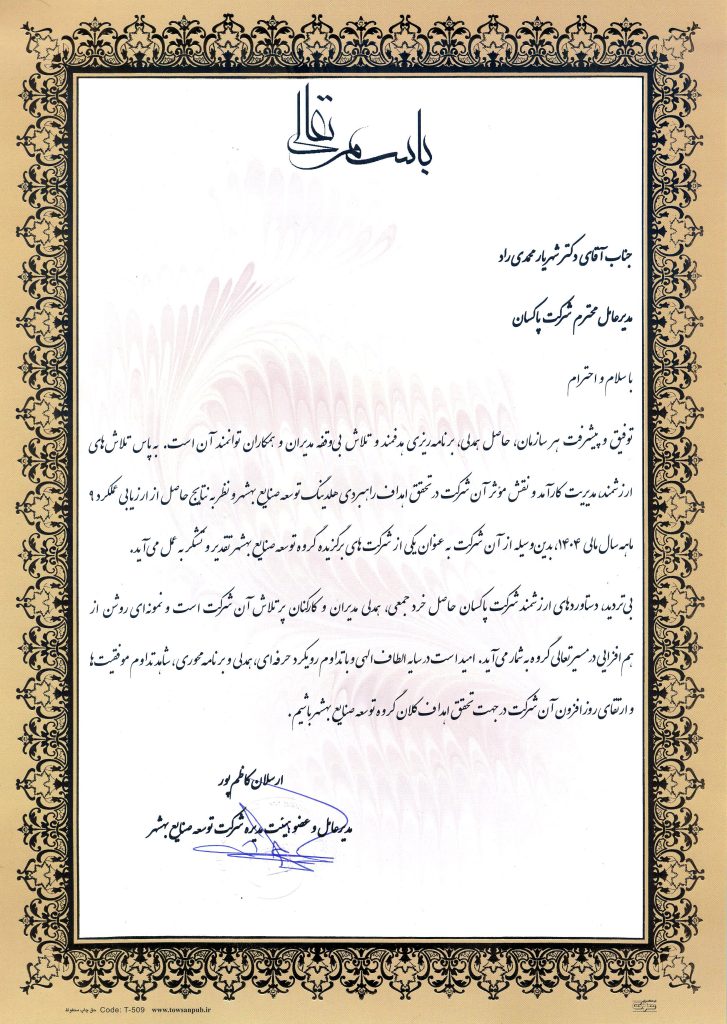 باسمه تعالی
جناب آقای دکتر شهریار محمدی راد
مدیرعامل محترم شرکت پاکسان
با سلام و احترام
توفیق و پیشرفت هر سازمان، حاصل همدلی، برنامه‌ریزی هدفمند و تلاش بی‌وقفه مدیران و همکاران توانمند آن است. به پاس تلاش‌های
ارزشمند، مدیریت کارآمد و نقش مؤثر آن شرکت در تحقق اهداف راهبردی هلدینگ توسعه صنایع بهشهر و نظر به نتایج حاصل از ارزیابی عملکرد ۹
ماهه سال مالی ۱۴۰۴، بدین‌وسیله از آن شرکت به عنوان یکی از شرکت‌های برگزیده گروه توسعه صنایع بهشهر تقدیر و تشکر به عمل می‌آید.
بی‌تردید، دستاوردهای ارزشمند شرکت پاکسان حاصل خرد جمعی، همدلی مدیران و کارکنان پرتلاش آن شرکت است و نمونه‌ای روشن از
هم افزایی در مسیر تعالی گروه به شمار می‌آید. امید است در سایه الطاف الهی و با تداوم رویکرد حرفه‌ای، همدلی و برنامه‌محوری، شاهد تداوم موفقیت‌ها
و ارتقای روزافزون آن شرکت در جهت تحقق اهداف کلان گروه توسعه صنایع بهشهر باشیم.
ارسلان کاظم‌پور
مدیرعامل و عضو هیئت مدیره شرکت توسعه صنایع بهشهر
حق چاپ محفوظ Code: T-509 www.towsanpub.ir